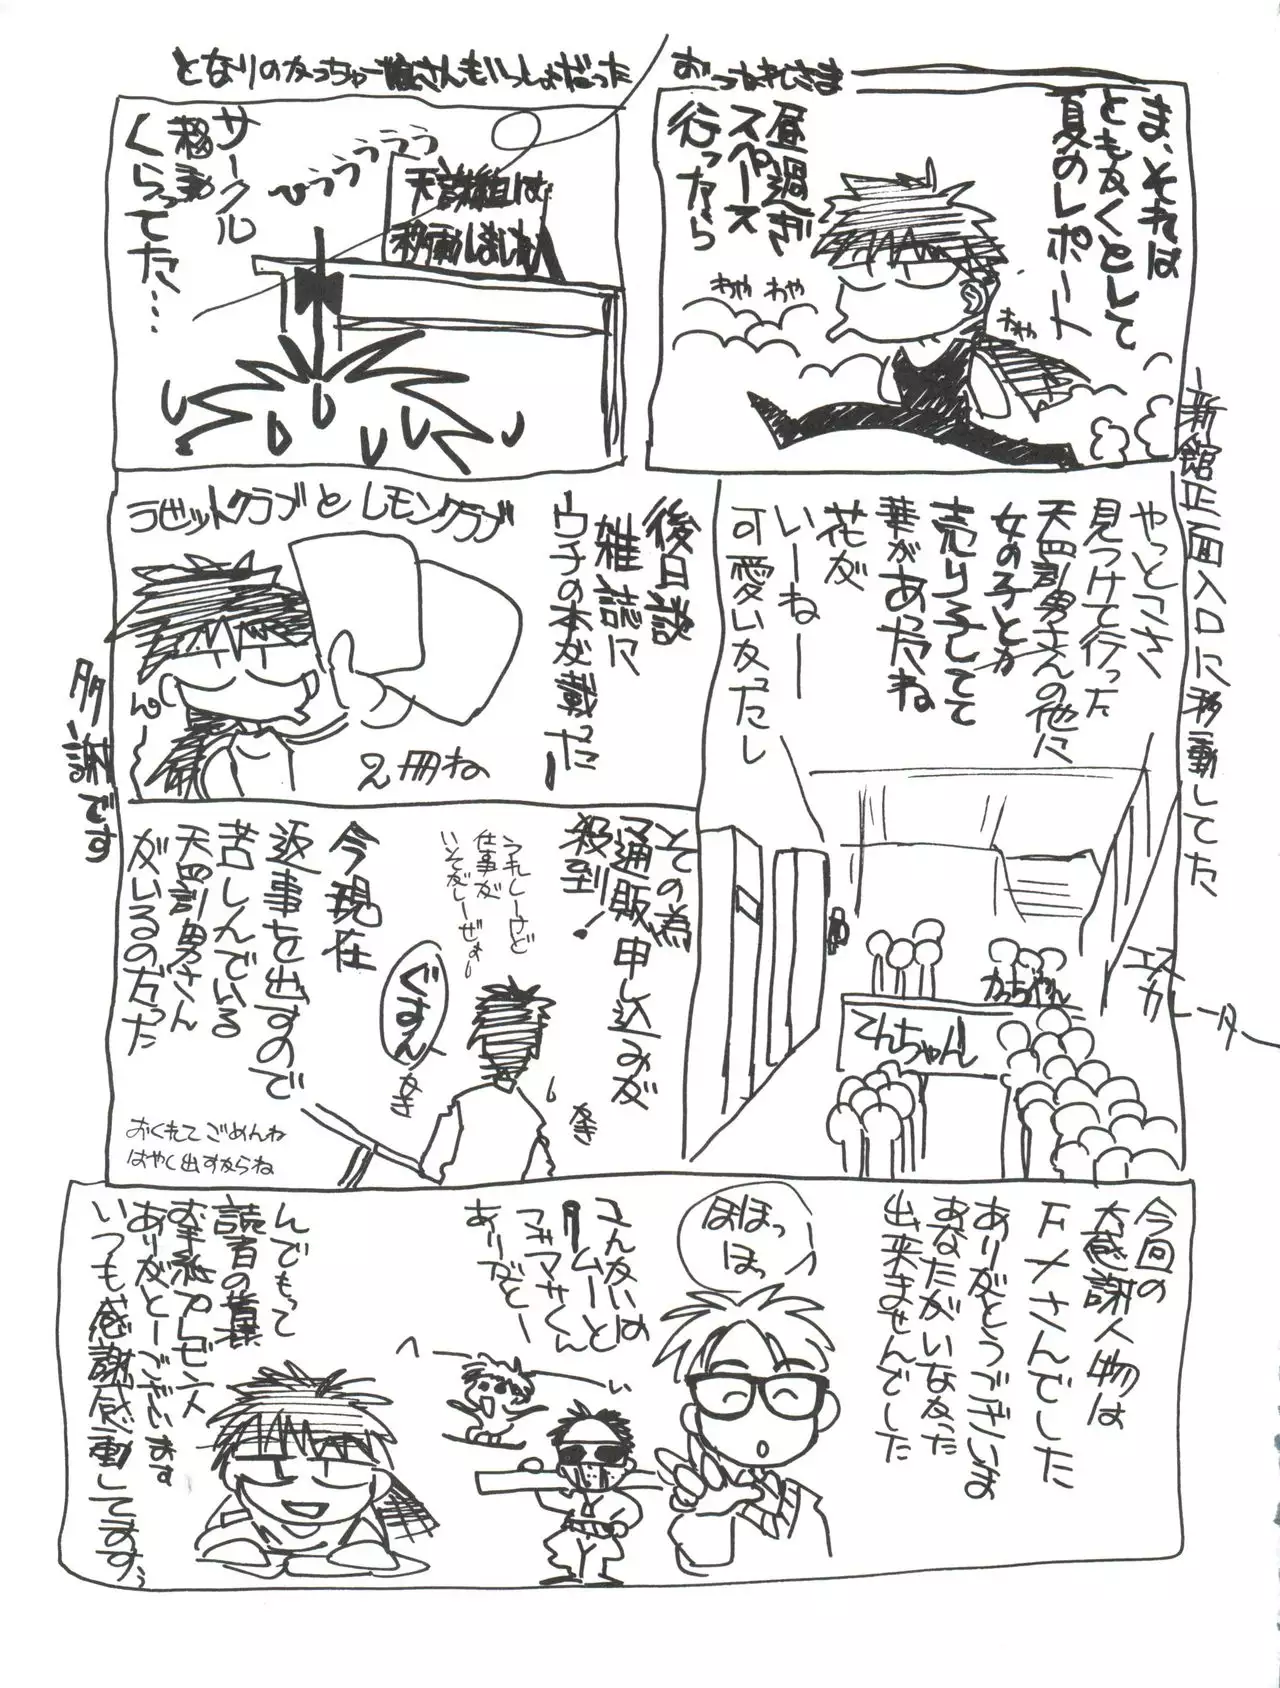 おつかれさま
ま、それは
ともかくとして
夏のレポート
昼過ぎ
スペース
行ったら
わや わや
わや
となりのかっちゃん
さんもいっしょだった
天誅組は
移動しました
ひゅううううう
サークル
移動
くらってた…
新館正面入口に移動してた
やっとこさ
見つけて行った
天誅男さんの他に
女の子とか
売り子してて
華があったね
花が
いーねー
可愛いかったし
エスカレーター
かっちゃん
てんちゃん
後日談
雑誌に
ウチの本が載った
ラビットクラブとレモンクラブ
2冊ね
ん～
多謝です
その為
通販申し込みが
殺到!
うれしーけど
仕事が
いそがしーぜぇー
今現在
返事を出すので
苦しんでいる
天誅男さん
がいるのだった
ぐすん
かき
かき
おくれてごめんね
はやく出すからね
今回の
大感謝人物は
下メさんでした
ありがとうございま
あなたがいなかった
出来ませんでした
ほほっ
ほっ
こんかいは
マサくん
ありがとー
んでもって
読者の皆様
お手紙プレゼント
ありがとーございます
いつも感謝感動してますぅ